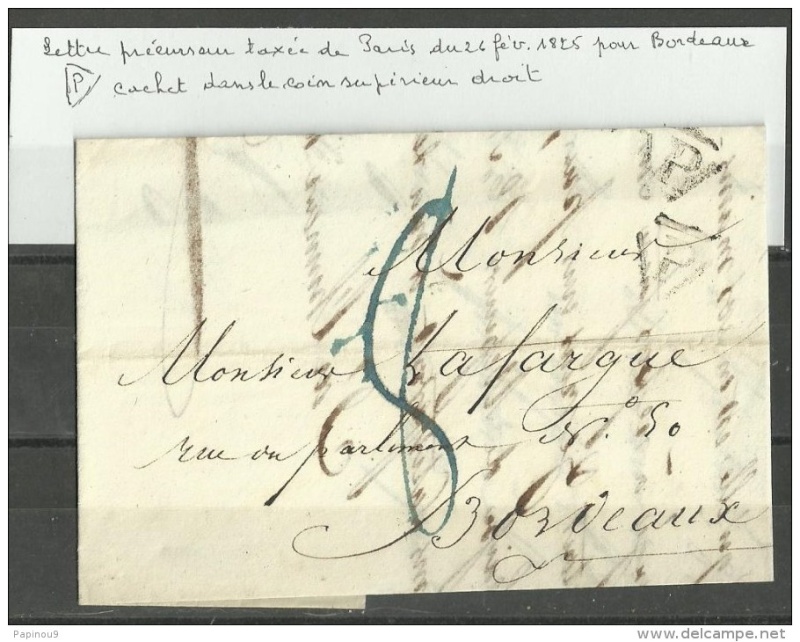 Lettre précurseur taxée de Paris du 26 fév. 1825 pour Bordeaux
P cachet dans le coin supérieur droit
P
P
8
Monsieur
Monsieur Lafargue
rue du parlement N.° 50
Bordeaux
Papinou9
delcampe.net